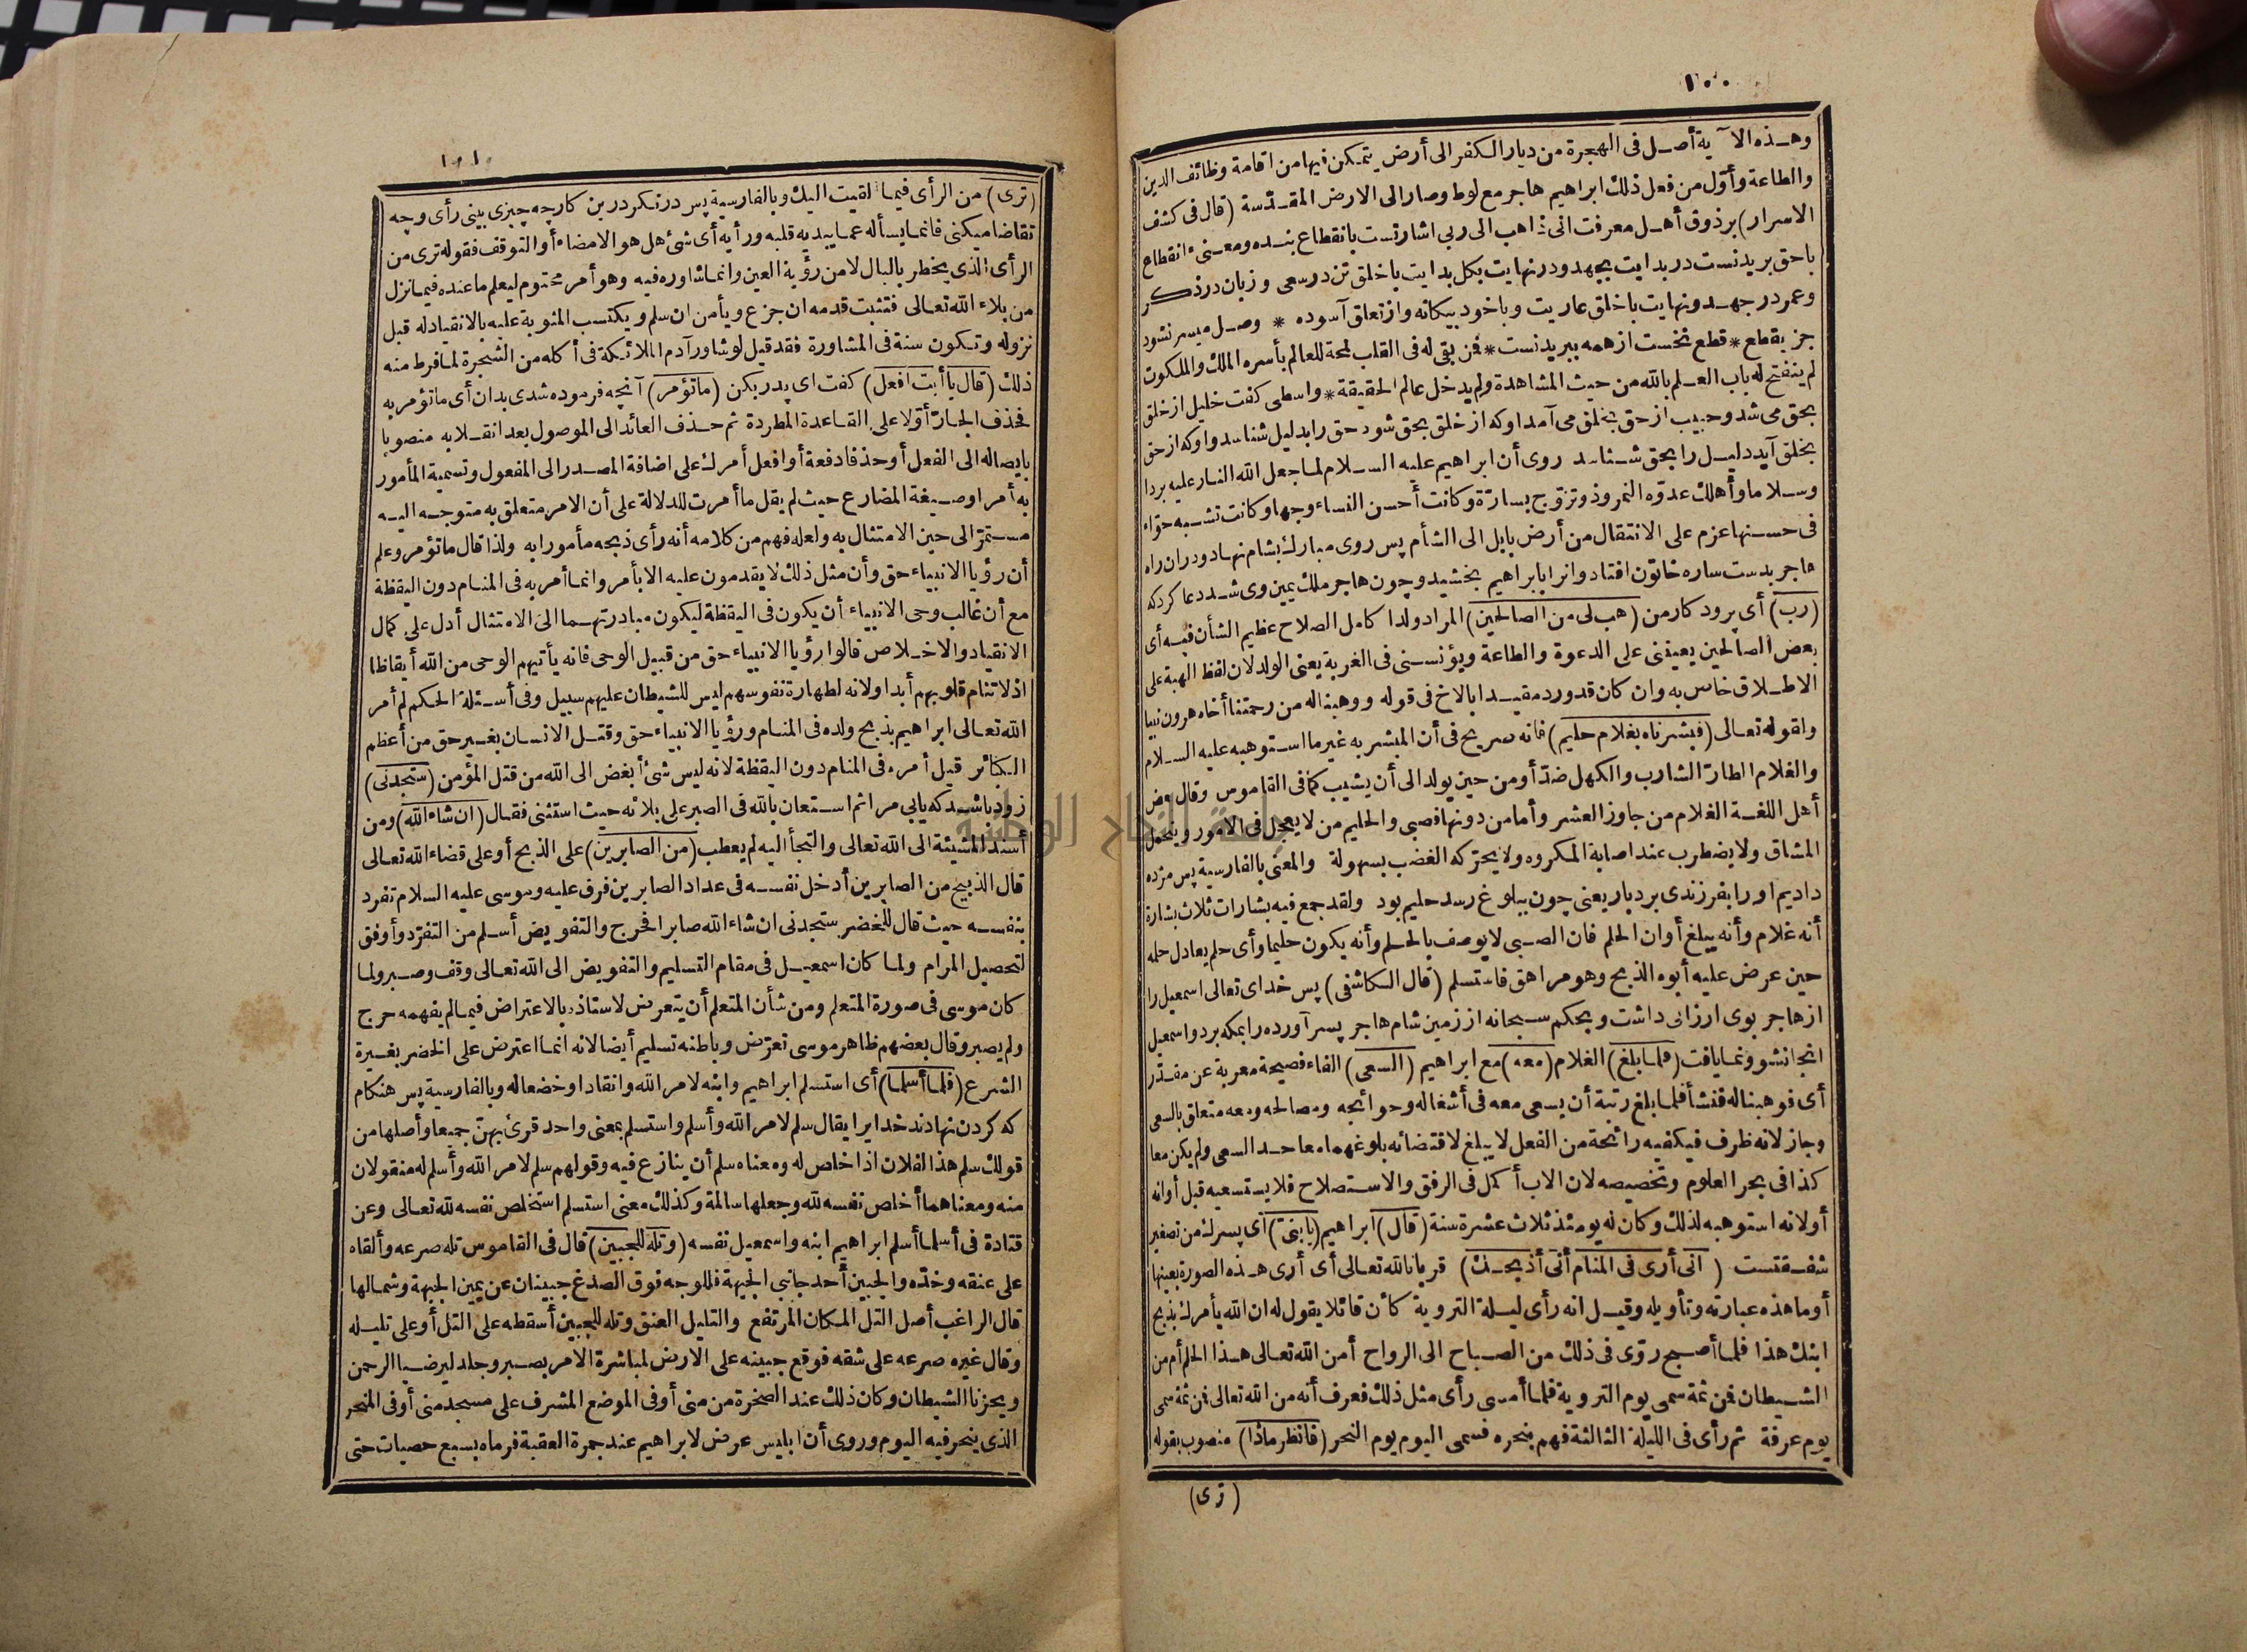 ١٠٠
وهـذه الآية أصـل فى الهجرة من ديار الكفر الى أرض يتمكن فيها من اقامة وظائف الدين
والطاعة وأوّل من فعل ذلك ابراهيم هاجر مع لوط وصار الى الارض المقـدّسة (قال فى كشف
الاسرار) برذوق أهـل معرفت انى ذاهب الى ربى اشارتست بانقطاع بنـده ومعـنىء انقطاع
باحق بريدنست در بدايت بجهد ودر نهايت بكل بدايت باخلق تن در سعى وزبان در ذكر
وعمر در جهـد ونهايت باخلق عاريت وباخود بيكانه واز تعلق آسوده * وصـل ميسر نشود
جز بقطع * قطع نخست از همه ببريدنست * فمن بقى له فى القلب لمحة للعالم بأسره الملك والملكوت
لم ينفتح له باب العـلم بالله من حيث المشاهدة ولم يدخل عالم الحقيقة * واسطى كفت خليل از خلق
بحق مى شد وحبيب از حق بخلق مى آمد اوكه از خلق بحق شود حق رابدليل شناسد واوكه از حق
بخلق آيد دليـل رابحق شـناسد روى أن ابراهيم عليه السـلام لما جعل الله النـار عليه بردا
وسـلاما وأهلك عدوّه النمروذ وتزوّج بسارّة وكانت أحسن النساء وجها وكانت تشـبه حوّاء
فى حسـنها عزم على الانتقال من أرض بابل الى الشأم پس روى مبارك بشام نهاد ودران راه
هاجر بدست ساره خاتون افتاد وانرا بابراهيم بخشيد وچون هاجر ملك يمين وى شـد دعا كردكه
(رب) أى پرودكار من (هب لى من الصالحين) المراد ولدا كامل الصلاح عظيم الشأن فيـه أى
بعض الصالحين يعيننى على الدعوة والطاعة ويؤنسـنى فى الغربة يعنى الولد لان لفظ الهبة على
الاطـلاق خاص به وان كان قد ورد مقيـدا بالاخ فى قوله ووهبنا له من رحمتنا أخاه هرون نبيا
ولقوله تعـالى (فبشرناه بغلام حليم) فانه صريح فى أن المبشر به غير ما استوهبه عليه السـلام
والغلام الطارّ الشارب والكهل ضدّ أو من حين يولد الى أن يشيب كما فى القاموس وقال بعض
أهل اللغـة الغلام من جاوز العشر وأما من دونها فصبى والحليم من لا يعجل فى الامور ويتحمل
المشاق ولا يضطرب عند اصابة المكروه ولا يحرّكه الغضب بسهولة والمعنى بالفارسية پس مژده
داديم اورا بفرزندى بردبار يعنى چون ببلوغ رسد حليم بود ولقد جمع فيه بشارات ثلاث بشارة
أنه غلام وأنه يبلغ أوان الحلم فان الصـبى لا يوصف بالحلم وأنه يكون حليما وأى حلم يعادل حلمه
حين عرض عليه أبوه الذبح وهو مراهق فاستسلم (قال الكاشفى) پس خداى تعالى اسمعيل را
از هاجر بوى ارزانى داشت وبحكم سـبحانه از زمين شام هاجر پسر آورده را بمكه برد واسمعيل
انجا نشو ونما يافت (فلما بلغ) الغلام (معه) مع ابراهيم (السعى) الفاء فصيحة معربة عن مقـدّر
أى فوهبنا له فنشأ فلما بلغ رتبة أن يسعى معه فى أشغاله وحوائجه ومصالحه ومعه متعلق بالسعى
وجاز لانه ظرف فيكفيه رائحة من الفعل لا يبلغ لاقتضائه بلوغهما معا حـد السعى ولم يكن معا
كذا فى بحر العلوم وتخصيصه لان الاب أكمل فى الرفق والاسـتصلاح فلا يستسعيه قبل أوانه
أولانه استوهبه لذلك وكان له يومئذ ثلاث عشرة سنة (قال) ابراهيم (يا بنىّ) أى پسرك من تصغير
شفـقتست (انى أرى فى المنام أنى أذبحـك) قربانا لله تعـالى أى أرى هـذه الصورة بعينها
أو ما هذه عبارته وتأويله وقيـل انه رأى ليـلة التروية كأن قائلا يقول له ان الله يأمرك بذبح
ابنك هذا فلـما أصبح روّى فى ذلك من الصـباح الى الرواح أمن الله تعـالى هـذا الحلم أم من
الشـيطان فمن ثمة سمى يوم التروية فلـما أمسى رأى مثل ذلك فعرف أنه من الله تعالى فمن ثمة سمى
يوم عرفة ثم رأى فى الليلة الثالثة فهم بنحره فسمى اليوم يوم النحر (فانظر ماذا) منصوب بقوله
(ترى)
١٠١
(ترى) من الرأى فيما ألقيت اليك وبالفارسية پس درنكر درين كار چه چيزى بينى رأى وچه
تقاضا ميكنى فانما يسأله عما يبديه قلبه ورأيه أى شئ هل هو الامضاء أو التوقف فقوله ترى من
الرأى الذى يخطر بالبال لا من رؤية العين وانما شاوره فيه وهو أمر محتوم ليعلم ما عنده فيما نزل
من بلاء الله تعـالى فتثبت قدمه ان جزع ويأمن ان سلم ويكتسب المثوبة عليه بالانقياد له قبل
نزوله وتكون سنة فى المشاورة فقد قيل لو شاور آدم الملائكة فى أكله من الشجرة لما فرط منه
ذلك (قال يا أبت افعل) كفت اى پدر بكن (ما تؤمر) آنچه فرموده شدى بدان أى ما تؤمر به
فحذف الجارّ أوّلا على القـاعدة المطردة ثم حـذف العائد الى الموصول بعد انقـلابه منصوبا
بايصاله الى الفعل أو حذفا دفعة أو افعل أمرك على اضافة المصـدر الى المفعول وتسمية المأمور
به أمرا وصـيغة المضارع حيث لم يقل ما أمرت للدلالة على أن الامر متعلق به متوجـه اليـه
مسـتمرّ الى حين الامتثال به ولعله فهم من كلامه أنه رأى ذبحه مأمورا به ولذا قال ما تؤمر وعلم
أن رؤيا الانبياء حق وأن مثل ذلك لا يقدمون عليه الا بأمر وانما أمر به فى المنـام دون اليقظة
مع أن غالب وحى الانبياء أن يكون فى اليقظة ليكون مبادرتهـما الى الامتثال أدل على كمال
الانقياد والاخـلاص قالوا رؤيا الانبياء حق من قبيل الوحى فانه يأتيهم الوحى من الله أيقاظا
اذ لا تنام قلوبهم أبدا ولانه لطهارة نفوسهم ليس للشيطان عليهم سبيل وفى أسـئلة الحكم لم أمر
الله تعـالى ابراهيم بذبح ولده فى المنـام ورؤيا الانبياء حق وقتـل الانسـان بغـير حق من أعظم
الكبائر قيل أمره فى المنام دون اليقظة لانه ليس شئ أبغض الى الله من قتل المؤمن (ستجدنى)
زود باشـد كه يابى مرا ثم اسـتعان بالله فى الصبر على بلائه حيث استثنى فقـال (ان شاء الله) ومن
أسند المشيئة الى الله تعالى والتجأ اليه لم يعطب (من الصابرين) على الذبح أو على قضاء الله تعـالى
قال الذبيح من الصابرين أدخل نفسـه فى عداد الصابرين فرق عليه وموسى عليه السلام تفرد
بنفسـه حيث قال للخضر ستجدنى ان شاء الله صابرا فخرج والتفويض أسـلم من التفرّد وأوفق
لتحصيل المرام ولما كان اسمعيـل فى مقام التسليم والتفويض الى الله تعـالى وقف وصـبر ولما
كان موسى فى صورة المتعلم ومن شأن المتعلم أن يتعرض لاستاذه بالاعتراض فيمـا لم يفهمه حرج
ولم يصبر وقال بعضهم ظاهر موسى تعرّض وباطنه تسليم أيضا لانه انما اعترض على الخضر بغـيرة
الشرع (فلما أسلما) أى استسلم ابراهيم وابنه لامر الله وانقادا وخضعا له وبالفارسية پس هنكام
كه كردن نهادند خدايرا يقال سلم لامر الله وأسلم واستسلم بمعنى واحد قرئ بهنّ جميعا وأصلها من
قولك سلم هذا لفلان اذا خلص له ومعناه سلم أن ينازع فيه وقولهم سلم لامر الله وأسلم له منقولان
منه ومعناهما أخلص نفسه لله وجعلها سالمة وكذلك معنى استسلم استخلص نفسه لله تعـالى وعن
قتادة فى أسلما أسلم ابراهيم ابنه واسمعيل نفسه (وتله للجبين) قال فى القاموس تله صرعه وألقاه
على عنقه وخدّه والجبين أحد جانبى الجبهة فللوجه فوق الصدغ جبينان عن يمين الجبهة وشمالها
قال الراغب أصل التل المـكان المرتفع والتليل العنق وتله للجبين أسقطه على التل أو على تليـله
وقال غيره صرعه على شقه فوقع جبينه على الارض لمباشرة الامر بصـبر وجلد ليرضـيا الرحمن
ويحزنا الشيطان وكان ذلك عند الصخرة من منى أو فى الموضع المشرف على مسجد منى أو فى المنحر
الذى ينحر فيه اليوم وروى أن ابليس عرض لابراهيم عند جمرة العقبة فرماه بسبع حصيات حتى